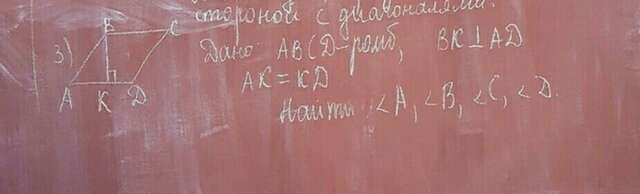 стороной с диагоналями.
3)
B
C
A K D
Дано: ABCD-ромб, BK⊥AD
AK=KD
Найти: <A, <B, <C, <D.